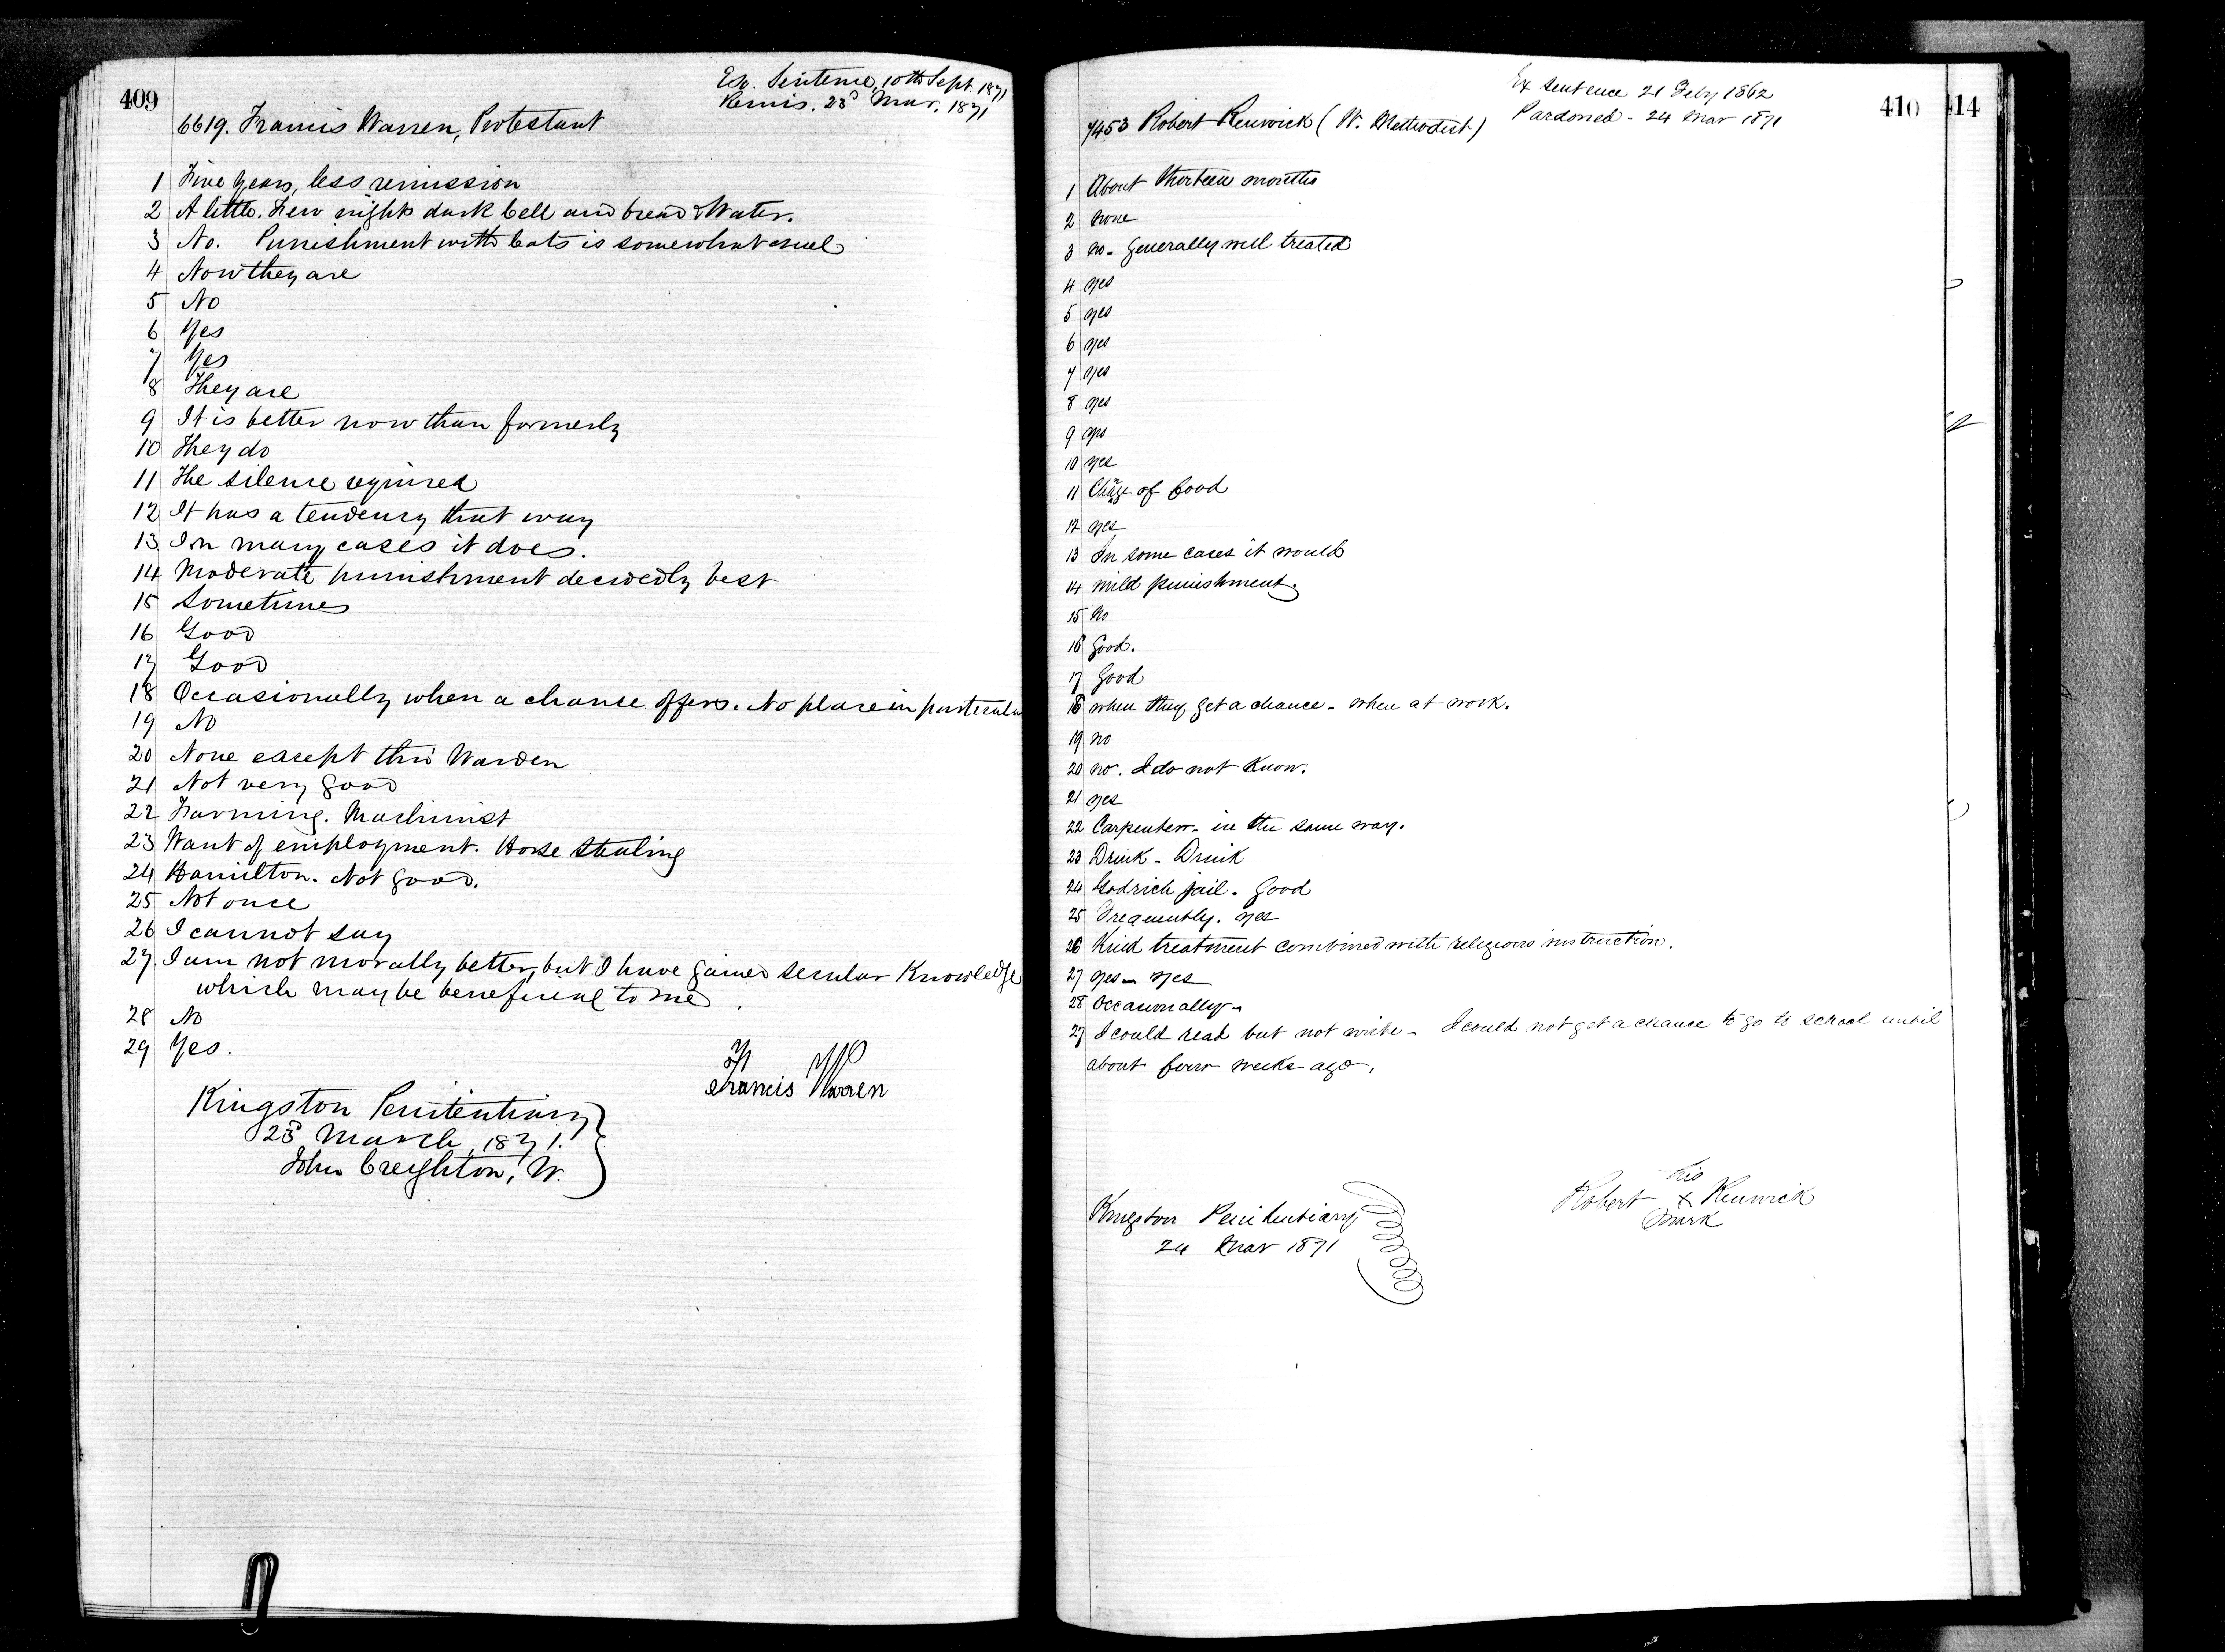 409
Ex. Sentence, 10th Sept. 1871
Remis. 23d Mar. 1871
6619. Francis Warren, Protestant
1 Five years, less remission
2 A little. Few nights dark Cell and bread & Water.
3 No. Punishment with Cats is somewhat cruel
4 Now they are
5 No
6 Yes
7 Yes
8 They are
9 It is better now than formerly
10 They do
11 The silence required
12 It has a tendency that way
13 In many cases it does.
14 Moderate punishment decidedly best
15 Sometimes
16 Good
17 Good
18 Occasionally when a chance offers. No place in particular
19 No
20 None except thro' Warden
21 Not very good
22 Farming. Machinist
23 Want of employment. Horse Stealing
24 Hamilton. Not good.
25 Not once
26 I cannot say
27. I am not morally better, but I have gained secular Knowledge
which may be beneficial to me.
28 No
29 Yes.
Francis Warren
Kingston Penitentiary
23d March, 1871.
John Creighton, W.
410
414
Ex Sentence 21 Feby 1862
Pardoned - 24 Mar 1871
7453 Robert Renwick (W. Methodist)
1 About thirteen months
2 None
3 no - generally well treated
4 yes
5 yes
6 yes
7 yes
8 yes
9 yes
10 yes
11 Change of food
12 yes
13 In some cases it would
14 mild punishment.
15 No
16 Good.
17 Good
18 when they get a chance - when at work.
19 no
20 no. I do not Know.
21 yes
22 Carpenter - in the same way.
23 Drink - Drink
24 Godrich jail. Good
25 Frequently. yes
26 Kind treatment combined with religious instruction.
27 yes - yes
28 Occasionally -
27 I could read but not write - I could not get a chance to go to school until
about four weeks ago.
his
Robert X Renwick
mark
Kingston Penitentiary
24 Mar 1871